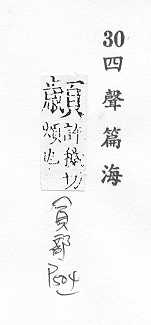 30 四聲篇海
許 切
頰也
(頁部
P504)